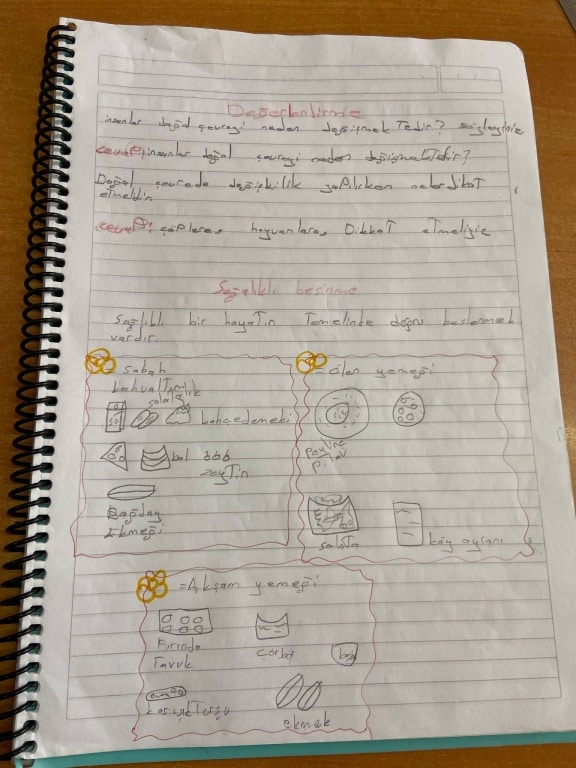 Değerlendirme
insanlar doğal çevreyi neden değişmektedir? söyleyiniz
cevap: insanlar doğal çevreyi neden değişmaktidir?
Doğal çevrede değişkilik yapılırken nelerdikat
etmeldin
cevap: çöplere, hayvanlara, Dikkat etmeliyiz
Sağalıklı besinme
Sağlıklı bir hayatın Temelinde doğru beslenmek
vardır.
sabah
kahvaltımlık
süt
bal
zeyTin
Bağday
Ekmeği
öğlen yemeği
pilav
salata
köy ayranı
=Akşam yemeği
Fırında
Tavuk
çorba
ekmek